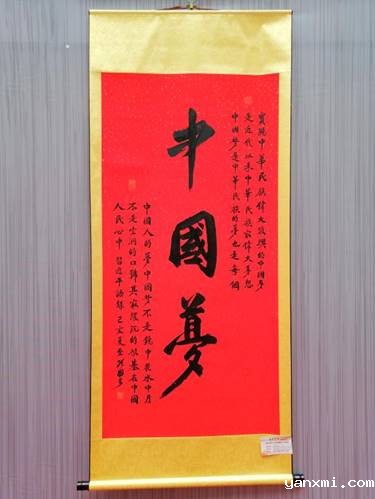 實現中華民族偉大復興的中國梦
是近代以来中華民族最偉大夢想
中國梦是中華民族的夢也是每個
中國夢
中國人的夢中國梦不是鏡中花水中月
不是空洞的口號其最深沉的根基在中國
人民心中 習近平語錄 己亥夏
yanxmi.com